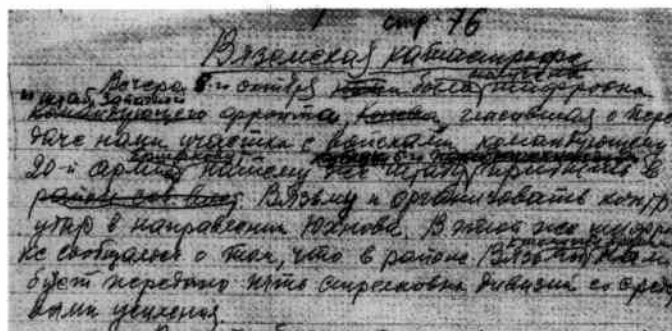 1 стр. 76
Вяземская катастрофа
Вечером 5-го октября была получена шифровка
и штаб Западного
командующего фронта, гласившая о пере
даче нами участка с войсками командующему
20-й армии Ершакову, нашему же штабу прибыть в
Вязьму и организовать контр
удар в направлении Юхнова. В этой же шифров
ке сообщалось о том, что в районе Вязьмы нам
будет передано пять стрелковых дивизий со средст
вами усиления.